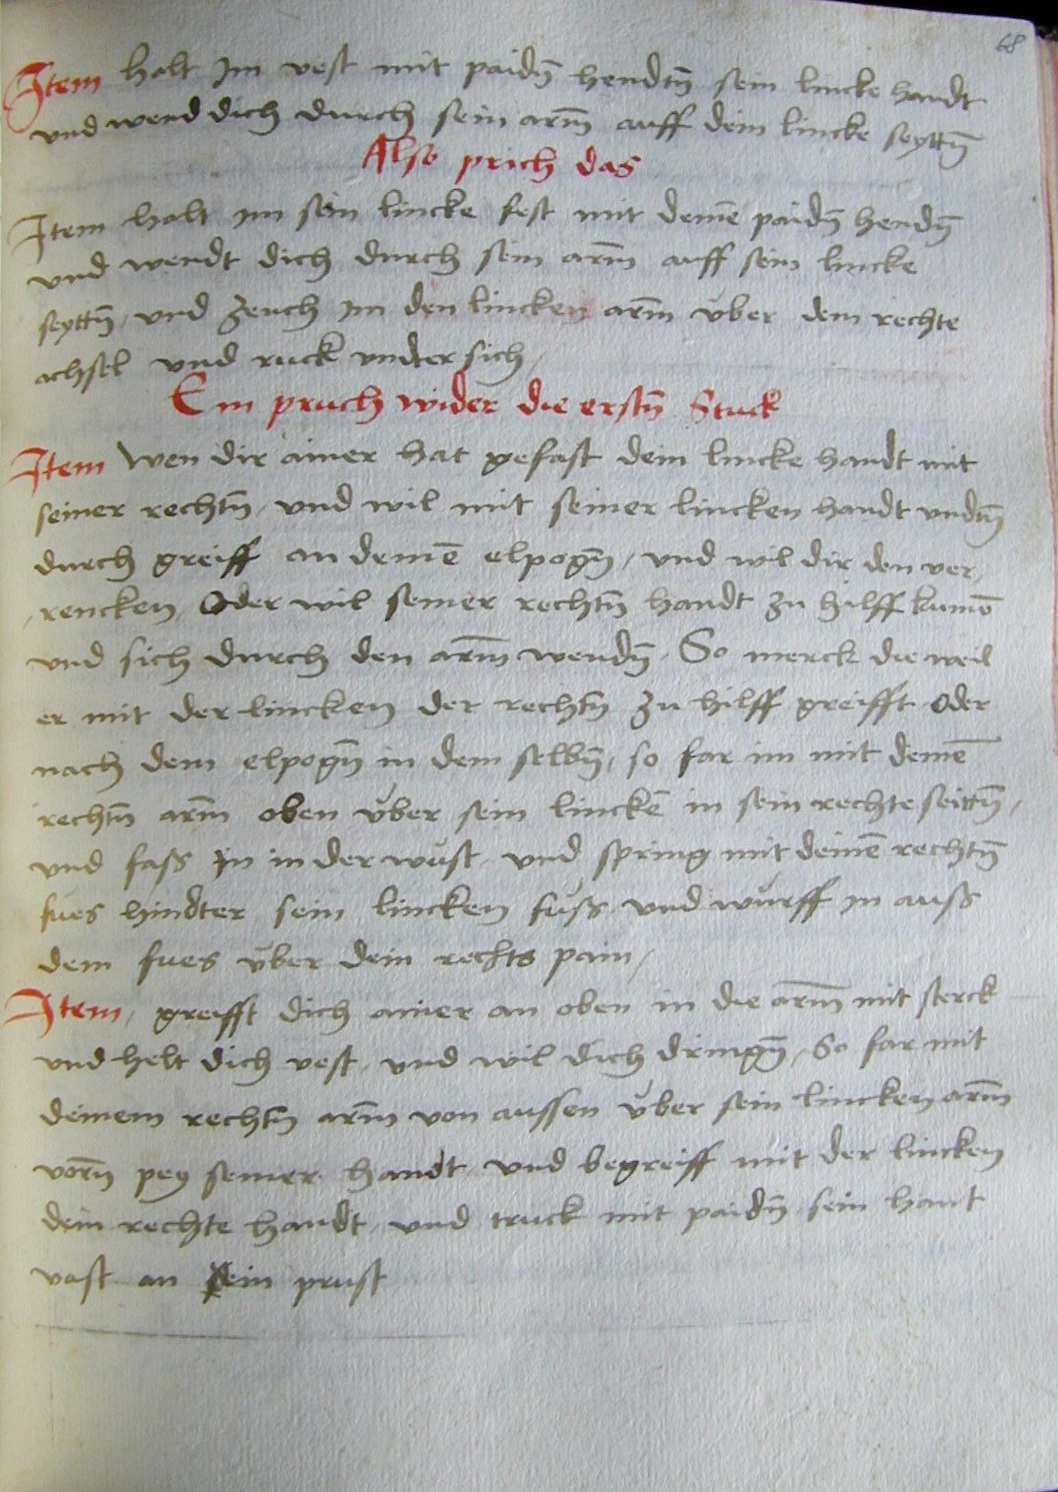 68
Item halt Im vest mit paidn̄ hendtn̄ sein lincke handt
vnd wend dich durch sein arm̄ auff dein lincke seyttn̄
Also prich das
Item halt im sein lincke fest mit deinē paidn̄ hendn̄
vnd wendt dich durch sein arm̄ auff sein lincke
seyttn̄, vnd zeuch im den lincken arm̄ vber dein rechte
achsel vnd ruck vndter sich,
Ein pruch wider die erstn̄ Stuck
Item Wen dir ainer hat gefast dein lincke handt mit
seiner rechtn̄, vnd wil mit seiner lincken handt vndtn̄
durch greiff an deinē elpogn̄, vnd wil dir den ver,
,rencken, Oder wil seiner rechtn̄ handt zu hilff kumē
vnd sich durch den arm̄ wendn̄, So merck die weil
er mit der lincken der rechtn̄ zu hilff greifft oder
nach dem elpogn̄ in dem selbn̄, so far im mit deinē
rechtn̄ arm̄ oben v̆ber sein linckē in sein rechte seittn̄,
vnd fass in in der wŭst vnd spring mit deinē rechtn̄
fues hindter sein lincken fŭss vnd wŭrff in auss
dem fues v̆ber dein rechts pain,
Item, greifft dich ainer an oben in die arm̄ mit sterck
vnd helt dich vest, vnd wil dich dringn̄, So far mit
deinem rechtn̄ arm̄ von aussen v̆ber sein lincken arm̄
vorn̄ pey seiner handt vnd begreiff mit der lincken
dein rechte handt, vnd truck mit paidn̄ sein hant
vast an sein prust